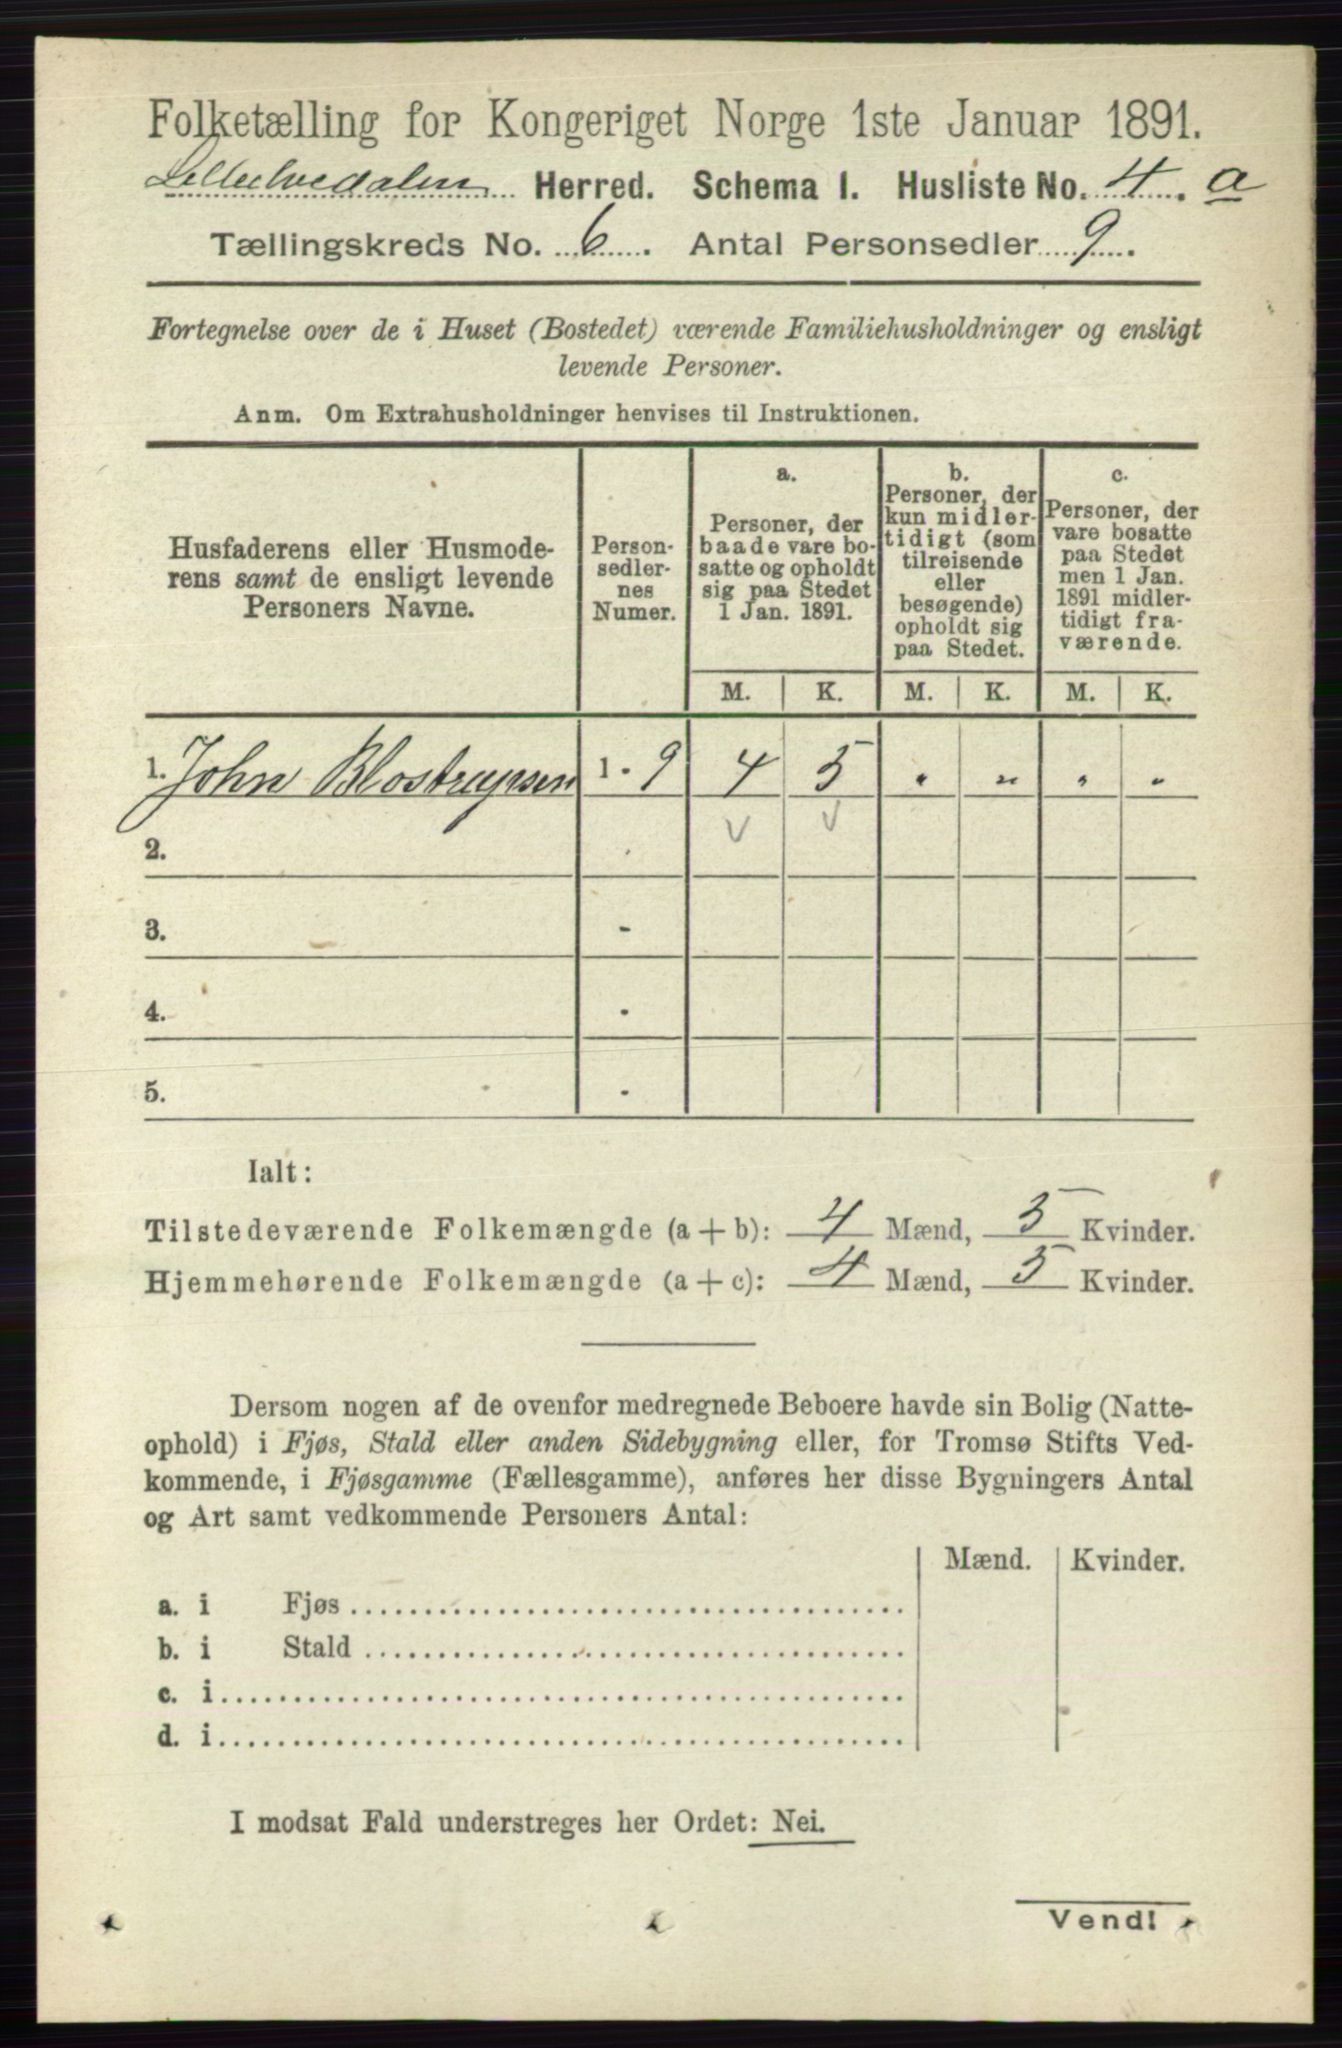 Folketælling for Kongeriget Norge 1ste Januar 1891.
Lilleelvedalen Herred. Schema 1. Husliste No. 4. a
Tællingskreds No. 6. Antal Personsedler 9.
Fortegnelse over de i Huset (Bostedet) værende Familiehusholdninger og ensligt
levende Personer.
Anm. Om Extrahusholdninger henvises til Instruktionen.
Husfaderens eller Husmode-
rens samt de ensligt levende
Personers Navne.
Person-
sedler-
nes
Numer.
a.
Personer, der
baade vare bo-
satte og opholdt
sig paa Stedet
1 Jan. 1891.
b.
Personer, der
kun midler-
tidigt (som
tilreisende
eller
besøgende)
opholdt sig
paa Stedet.
c.
Personer, der
vare bosatte
paa Stedet
men 1 Jan.
1891 midler-
tidigt fra-
værende.
M. K. M. K. M. K.
1. John Blostrupsen 1 - 9 4 5 " " " "
2. -
3. -
4. -
5. -
Ialt:
Tilstedeværende Folkemængde (a + b): 4 Mænd, 5 Kvinder.
Hjemmehørende Folkemængde (a + c): 4 Mænd, 5 Kvinder.
Dersom nogen af de ovenfor medregnede Beboere havde sin Bolig (Natte-
ophold) i Fjøs, Stald eller anden Sidebygning eller, for Tromsø Stifts Ved-
kommende, i Fjøsgamme (Fællesgamme), anføres her disse Bygningers Antal
og Art samt vedkommende Personers Antal:
Mænd. Kvinder.
a. i Fjøs
b. i Stald
c. i
d. i
I modsat Fald understreges her Ordet: Nei.
Vend!